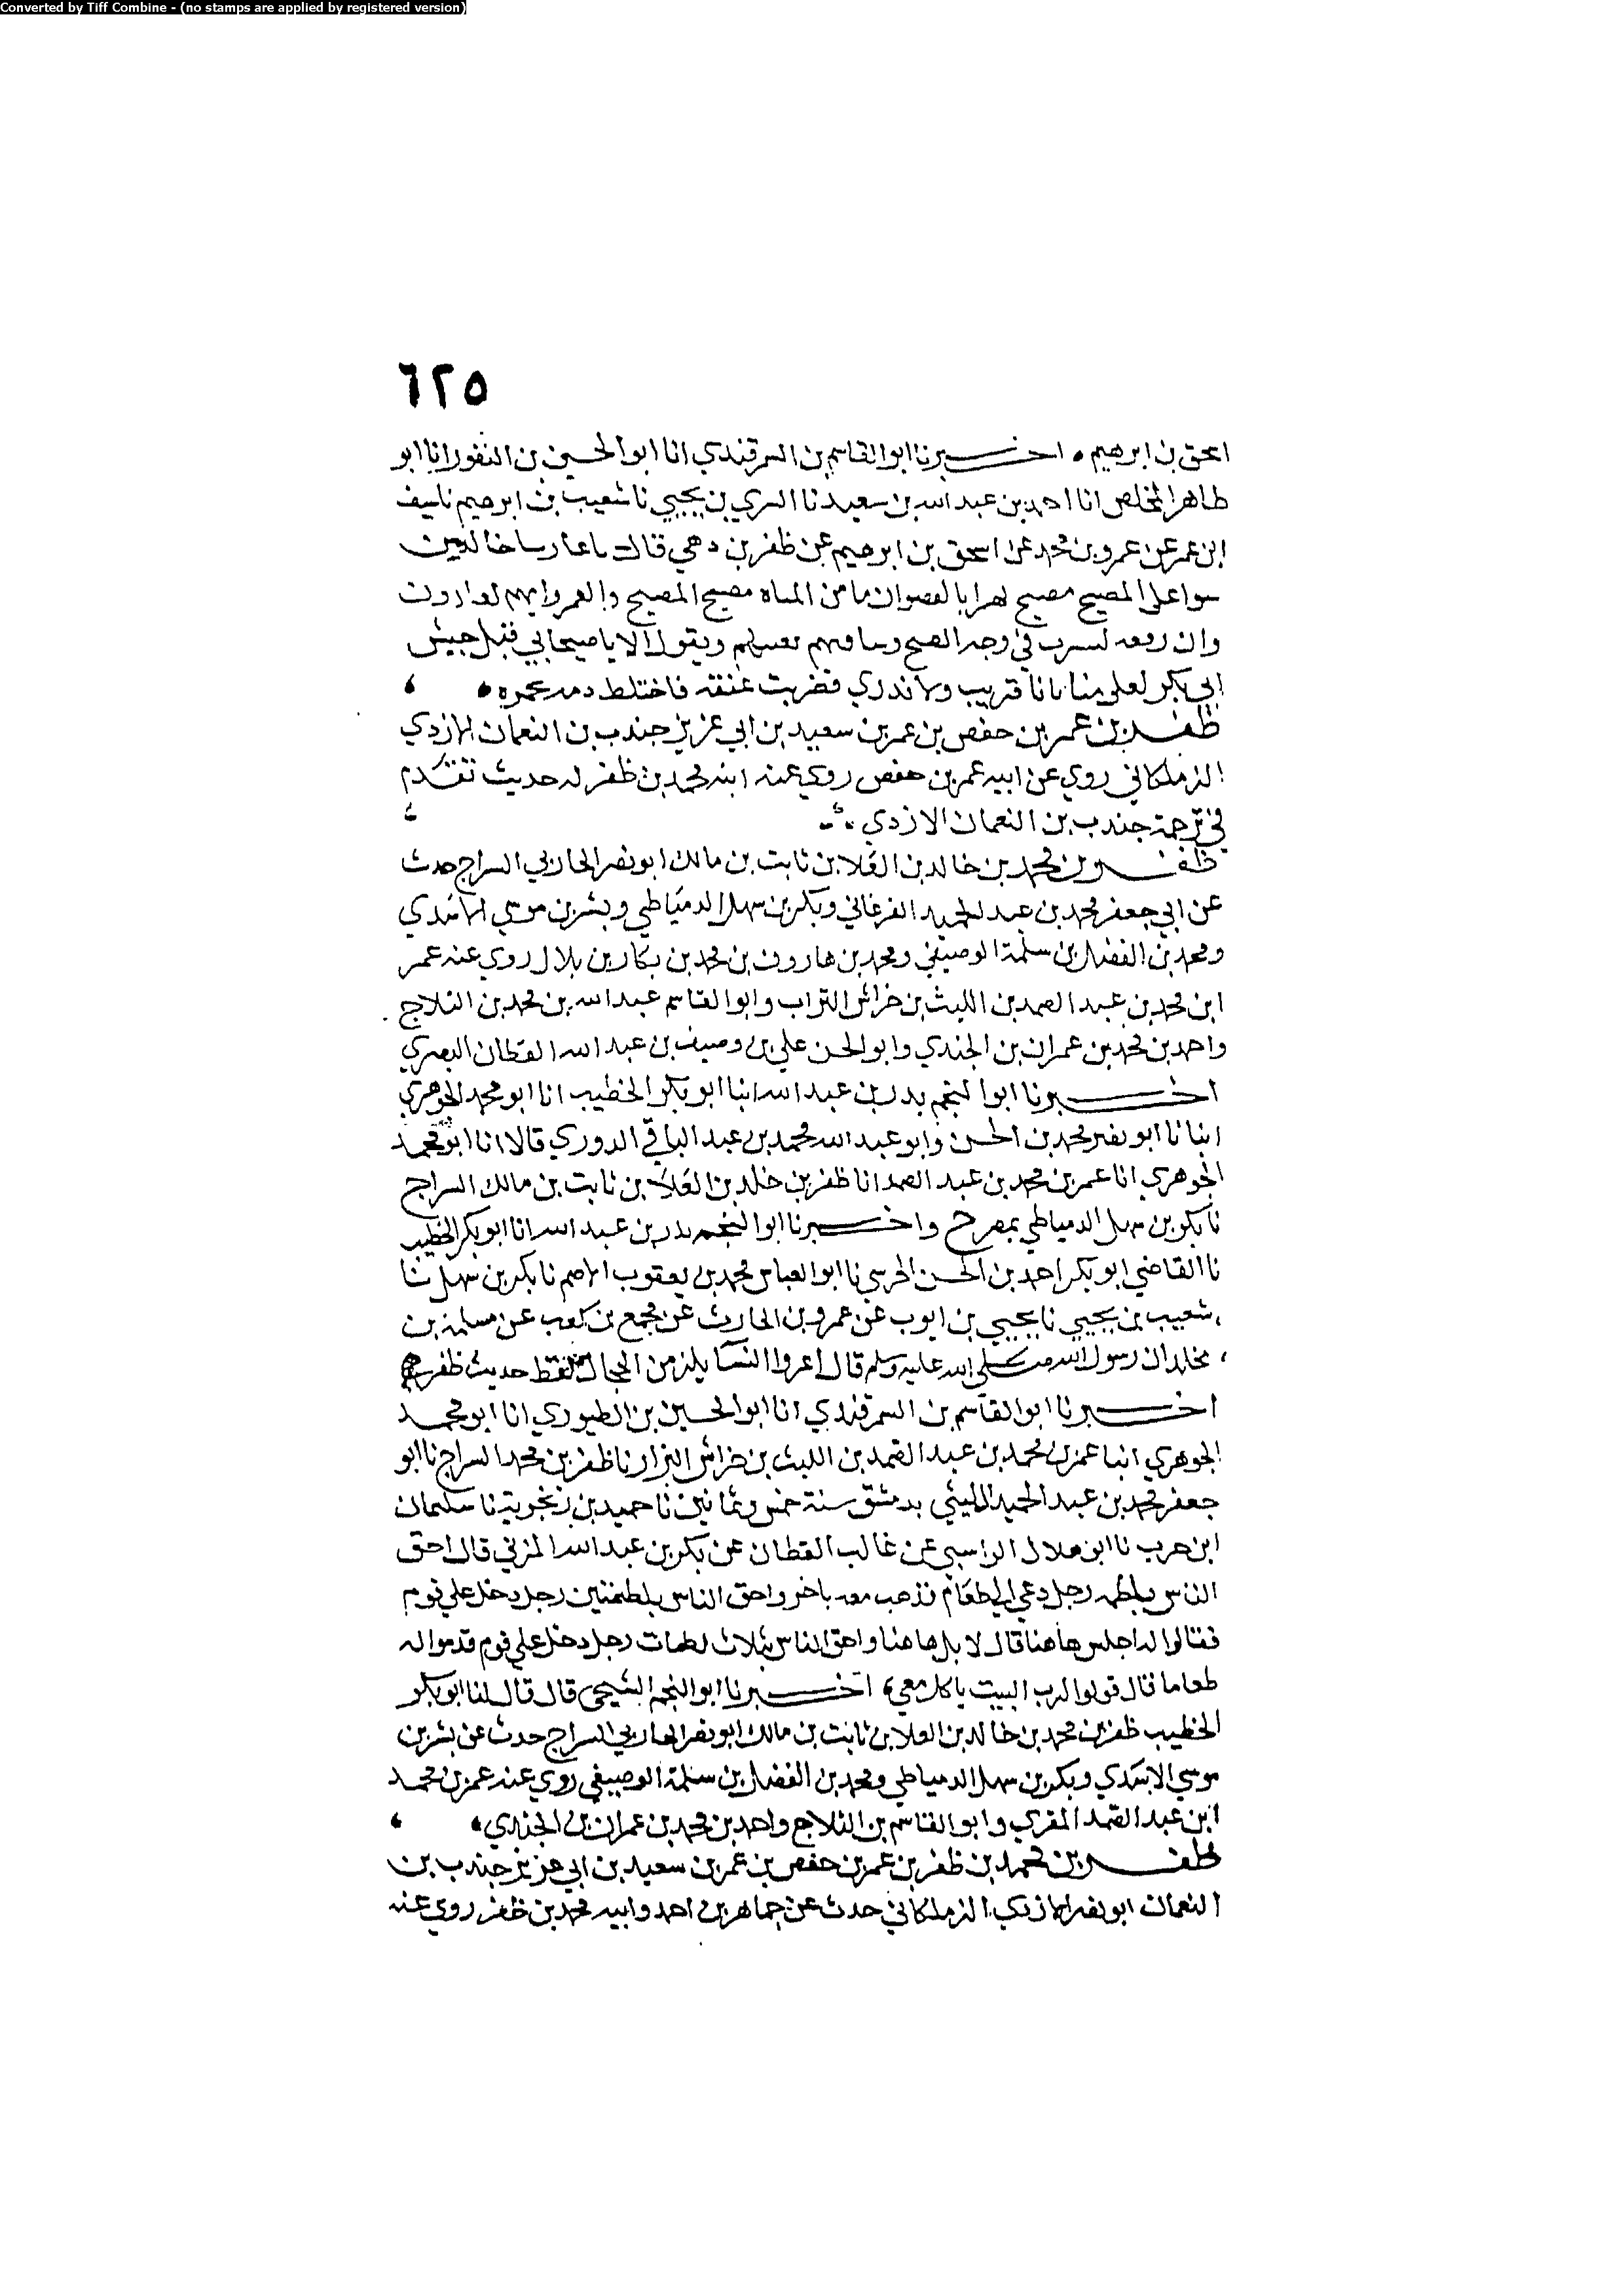 Converted by Tiff Combine - (no stamps are applied by registered version)
٦٢٥
اسحق بن ابرهيم • اخبرنا ابو القاسم بن السمرقندي انا ابو الحسين بن النقور انا ابو
طاهر المخلص انا احمد بن عبد الله بن سعيد نا السري بن يحيي نا شعيب بن ابرهيم نا سيف
ابن عمر عن عمرو بن محمد عن اسحق بن ابرهيم عن ظفر بن دهي قال خالد من
سوا علي المصيح مصيح بهرا بالقصوان ما من المياه مصبح المصيح والنمر وانهم لغارون
وان رفقه لتشرب في وجه الصبح وساقيهم يغنيهم ويقول الا يا صبحاني قبل جيش
ابي بكر لعل منايانا قريب ولا ندري فضربت عنقه فاختلط دمه بخمره •
ظفر بن عمر بن حفص بن عمر بن سعيد بن ابي عزيز جندب بن النعمان الازدي
الزملكاني روي عن ابيه عمر بن حفص روي عنه ابنه محمد بن ظفر له حديث تقدم
في ترجمة جندب بن النعمان الازدي
ظفر بن محمد بن خالد بن العلا بن ثابت بن مالك ابو نصر الحاربي السراج حدث
عن ابي جعفر محمد بن عبد الحميد الفرغاني وبكر بن سهل الدمياطي وبشر بن موسي الاسدي
ومحمد بن الفضل بن سلمة الوصيفي ومحمد بن هارون بن محمد بن بكار بن بلال روي عنه عمر
ابن محمد بن عبد الصمد بن الليث بن خراش التراب وابو القاسم عبد الله بن محمد بن الثلاج
واحمد بن محمد بن عمران بن الجندي وابو الحسن علي بن وصيف بن عبد الله القطان البصري
اخبرنا ابو النجم بدر بن عبد الله انبا ابو بكر الخطيب انا ابو محمد الجوهري
انبانا ابو نصر محمد بن الحسن وابو عبد الله محمد بن عبد الباقي الدوري قالا انا ابو محمد
الجوهري انا عمر بن محمد بن عبد الصمد انا ظفر بن خلد بن العلا بن ثابت بن مالك السراج
نا بكر بن سهل الدمياطي بمصر ح واخبرنا ابو النجم بدر بن عبد الله انا ابو بكر الخطيب
نا القاضي ابو بكر احمد بن الحسن الحرسي نا ابو العباس محمد بن يعقوب الاصم نا بكر بن سهل نا
شعيب بن يحيي نا يحيي بن ايوب عن عمرو بن الحارث عن مجمع بن كعب عن مسلمة بن
مخلد ان رسول الله صلي الله عليه وسلم قال اعروا النسا يلزمن الحجال لفظ حديث ظفر
اخبرنا ابو القاسم بن السمرقندي انا ابو الحسين بن الطيوري انا ابو محمد
الجوهري انبا عمر بن محمد بن عبد الصمد بن الليث بن خراش البزار نا ظفر بن محمد السراج نا ابو
جعفر محمد بن عبد الحميد الليثي بدمشق سنة خمس وثمانين نا حميد بن زنجوية نا سليمان
ابن حرب نا ابو هلال الراسبي عن غالب القطان عن بكر بن عبد الله المزني قال احق
الناس بلطمه رجل دعي الي طعام فذهب معه باخر واحق الناس بلطمتين رجل دخل علي قوم
فقالوا له اجلس هاهنا قال لا بل هاهنا واحق الناس بثلاث لطمات رجل دخل علي قوم قدموا له
طعاما قال قولوا لرب البيت ياكل معي اخبرنا ابو النجم الشيحي قال قال لنا ابو بكر
الخطيب ظفر بن محمد بن خالد بن العلا بن ثابت بن مالك ابو نصر الحاربي السراج حدث عن بشر بن
موسي الاسدي وبكر بن سهل الدمياطي ومحمد بن الفضل بن سلمة الوصيفي روي عنه عمر بن محمد
ابن عبد الصمد المقري وابو القاسم بن الثلاج واحمد بن محمد بن عمران بن الجندي
ظفر بن محمد بن ظفر بن عمر بن حفص بن عمر بن سعيد بن ابي عزيز جندب بن
النعمان ابو نصر الازدي الزملكاني حدث عن جماهر بن احمد وابيه محمد بن ظفر روي عنه